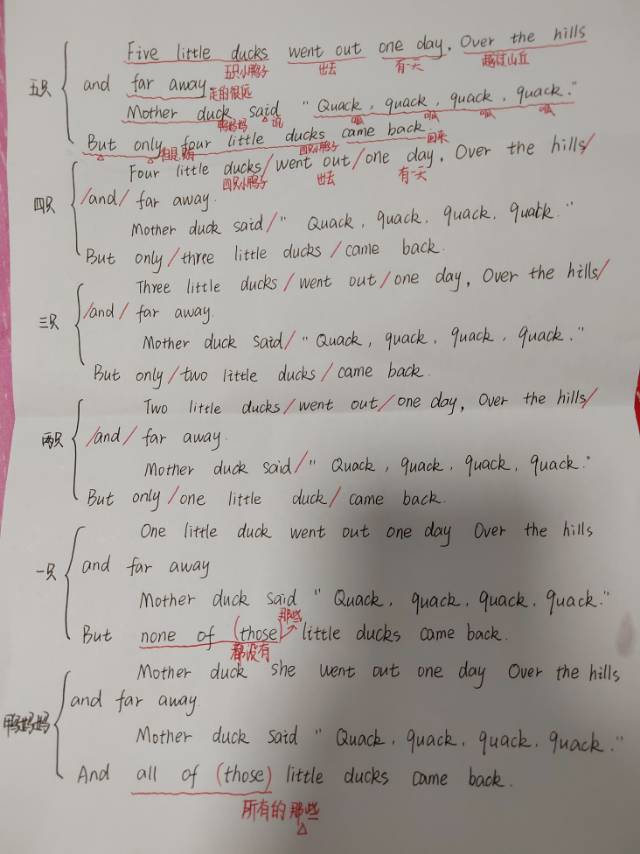 Five little ducks went out one day. Over the hills
五只小鸭子 出去 有一天 越过山丘
五只 and far away 走的很远
Mother duck said " Quack, quack, quack, quack."
鸭妈妈 说 呱 呱 呱 呱
But only four little ducks came back.
但是 四只小鸭子 回来
Four little ducks/went out/one day, Over the hills/
四只小鸭子 出去 有一天
四只 /and/ far away.
Mother duck said/" Quack, quack, quack, quack."
But only/three little ducks/came back.
Three little ducks/went out/one day, Over the hills/
三只 /and/ far away.
Mother duck said/" Quack, quack, quack, quack."
But only/two little ducks/came back.
Two little ducks/went out/one day, Over the hills/
两只 /and/ far away.
Mother duck said/" Quack, quack, quack, quack."
But only/one little duck/came back.
One little duck went out one day Over the hills
一只 and far away
Mother duck said " Quack, quack, quack, quack."
那些
But none of (those) little ducks came back.
都没有
Mother duck she went out one day Over the hills
鸭妈妈 and far away.
Mother duck said " Quack, quack, quack, quack."
And all of (those) little ducks came back.
所有的 那些